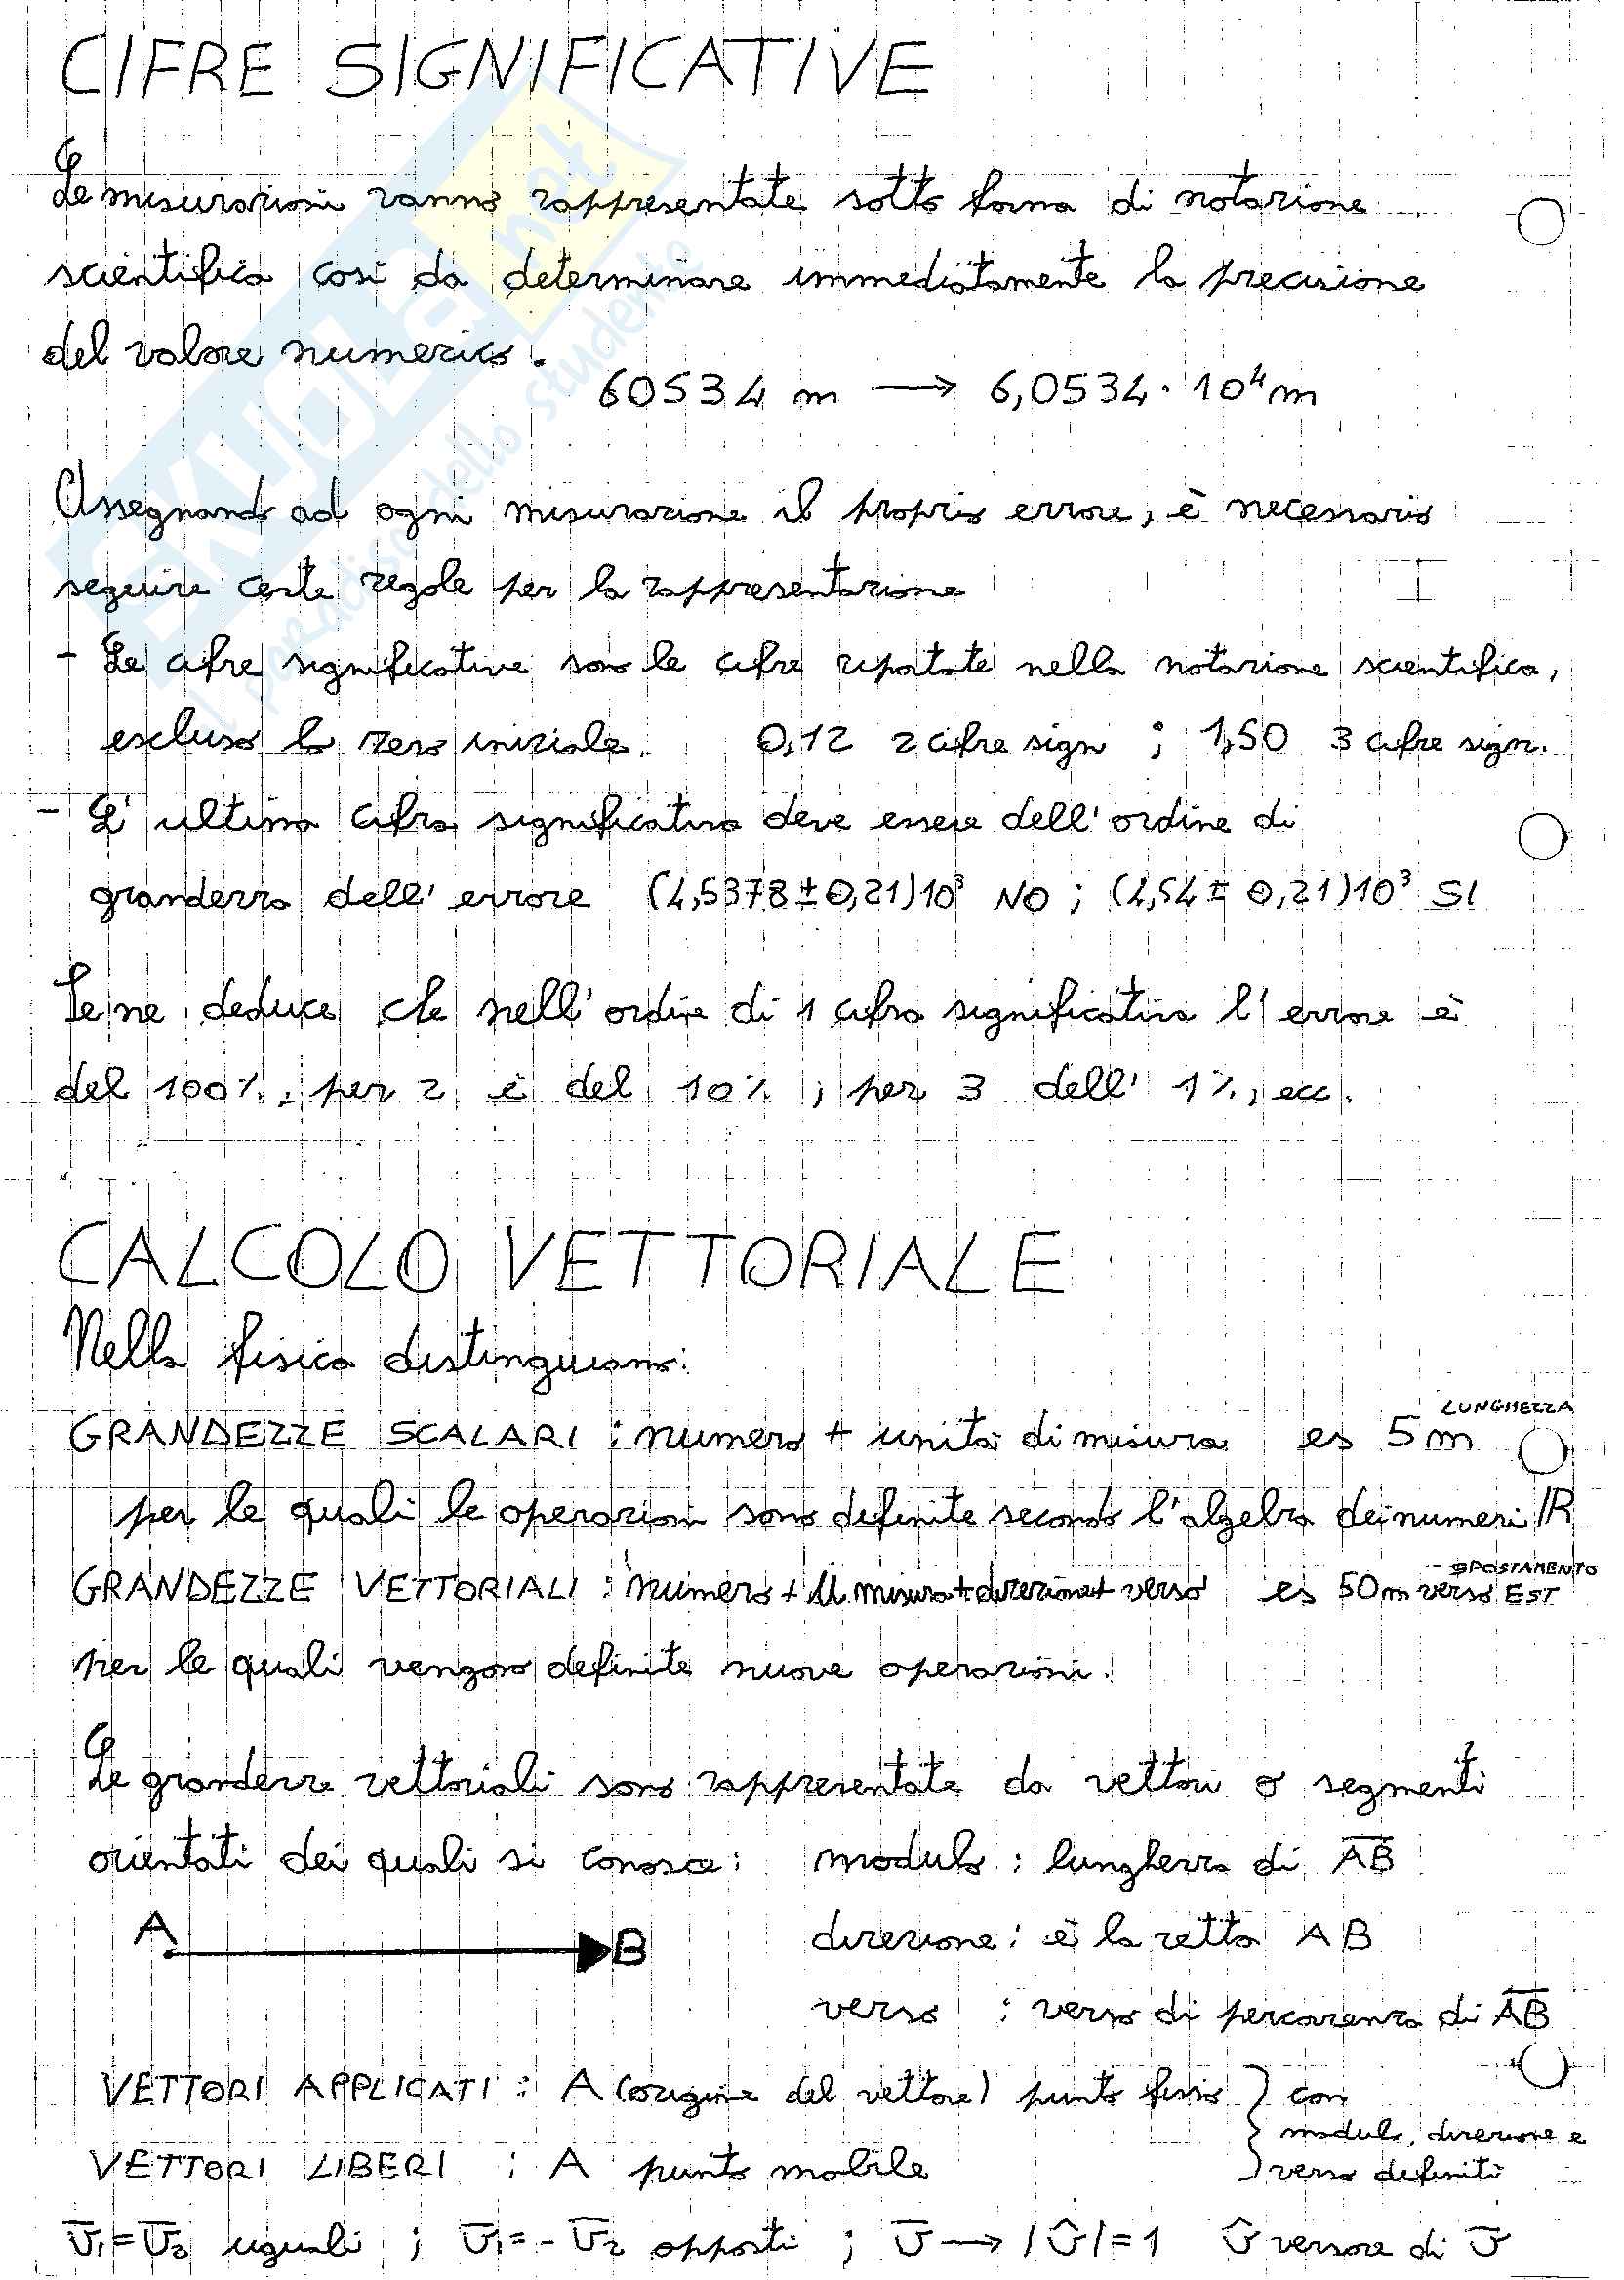 CIFRE SIGNIFICATIVE
Le misurazioni vanno rappresentate sotto forma di notazione
scientifica così da determinare immediatamente la precisione
del valore numerico.
60534 m → 6,0534 · 10⁴ m
Assegnando ad ogni misurazione il proprio errore, è necessario
seguire certe regole per la rappresentazione
- Le cifre significative sono le cifre riportate nella notazione scientifica,
escluso lo zero iniziale. 0,12 2 cifre sign ; 1,50 3 cifre sign.
- L'ultima cifra significativa deve essere dell'ordine di
grandezza dell'errore (4,5378 ± 0,21)10³ NO ; (4,54 ± 0,21)10³ SI
Se ne deduce che nell'ordine di 1 cifra significativa l'errore è
del 100%, per 2 è del 10%, per 3 dell'1%, ecc.
CALCOLO VETTORIALE
Nella fisica distinguiamo:
LUNGHEZZA
GRANDEZZE SCALARI : numero + unità di misura es 5 m
per le quali le operazioni sono definite secondo l'algebra dei numeri ℝ
SPOSTAMENTO
GRANDEZZE VETTORIALI : numero + U. misura + direzione + verso es 50m verso EST
per le quali vengono definite nuove operazioni.
Le grandezze vettoriali sono rappresentate da vettori o segmenti
orientati dei quali si conosce: modulo : lunghezza di A̅B̅
A B direzione : è la retta AB
verso : verso di percorrenza di A̅B̅
VETTORI APPLICATI : A (origine del vettore) punto fisso } con
modulo, direzione e
VETTORI LIBERI : A punto mobile verso definiti
v̅₁ = v̅₂ uguali ; v̅₁ = - v̅₂ opposti ; v̅ → |v̂| = 1 v̂ versore di v̅